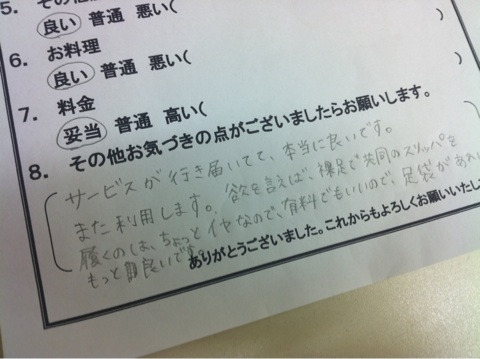 5. その他
良い 普通 悪い( )
6. お料理
良い 普通 悪い( )
7. 料金
妥当 普通 高い( )
8. その他お気づきの点がございましたらお願いします。
サービスが行き届いてて、本当に良いです。
また利用します。欲を言えば、裸足で共同のスリッパを
履くのは、ちょっとイヤなので、有料でもいいので、足袋があれば
もっと良いです。
ありがとうございました。これからもよろしくお願いいたし